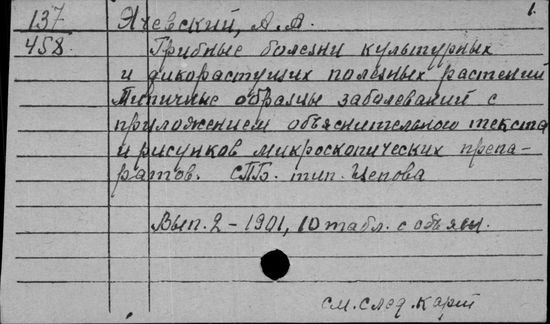 137 Ячевский, А. А. 1.
458. Грибные болезни культурных
и дикорастущих полезных растений
Типичные образцы заболеваний с
приложением объяснительного текста
и рисунков микроскопических препа-
ратов. СПБ. тип.
Вып. 2 - 1901, 10 табл. с объясн.
см. след. карт